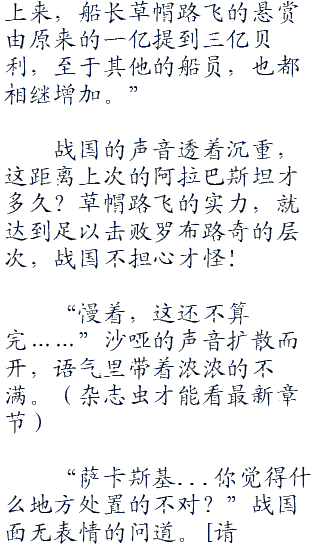 上来，船长草帽路飞的悬赏
由原来的一亿提到三亿贝
利，至于其他的船员，也都
相继增加。”
战国的声音透着沉重，
这距离上次的阿拉巴斯坦才
多久？草帽路飞的实力，就
达到足以击败罗布路奇的层
次，战国不担心才怪！
“慢着，这还不算
完……”沙哑的声音扩散而
开，语气里带着浓浓的不
满。（杂志虫才能看最新章
节）
“萨卡斯基...你觉得什
么地方处置的不对？”战国
面无表情的问道。[请